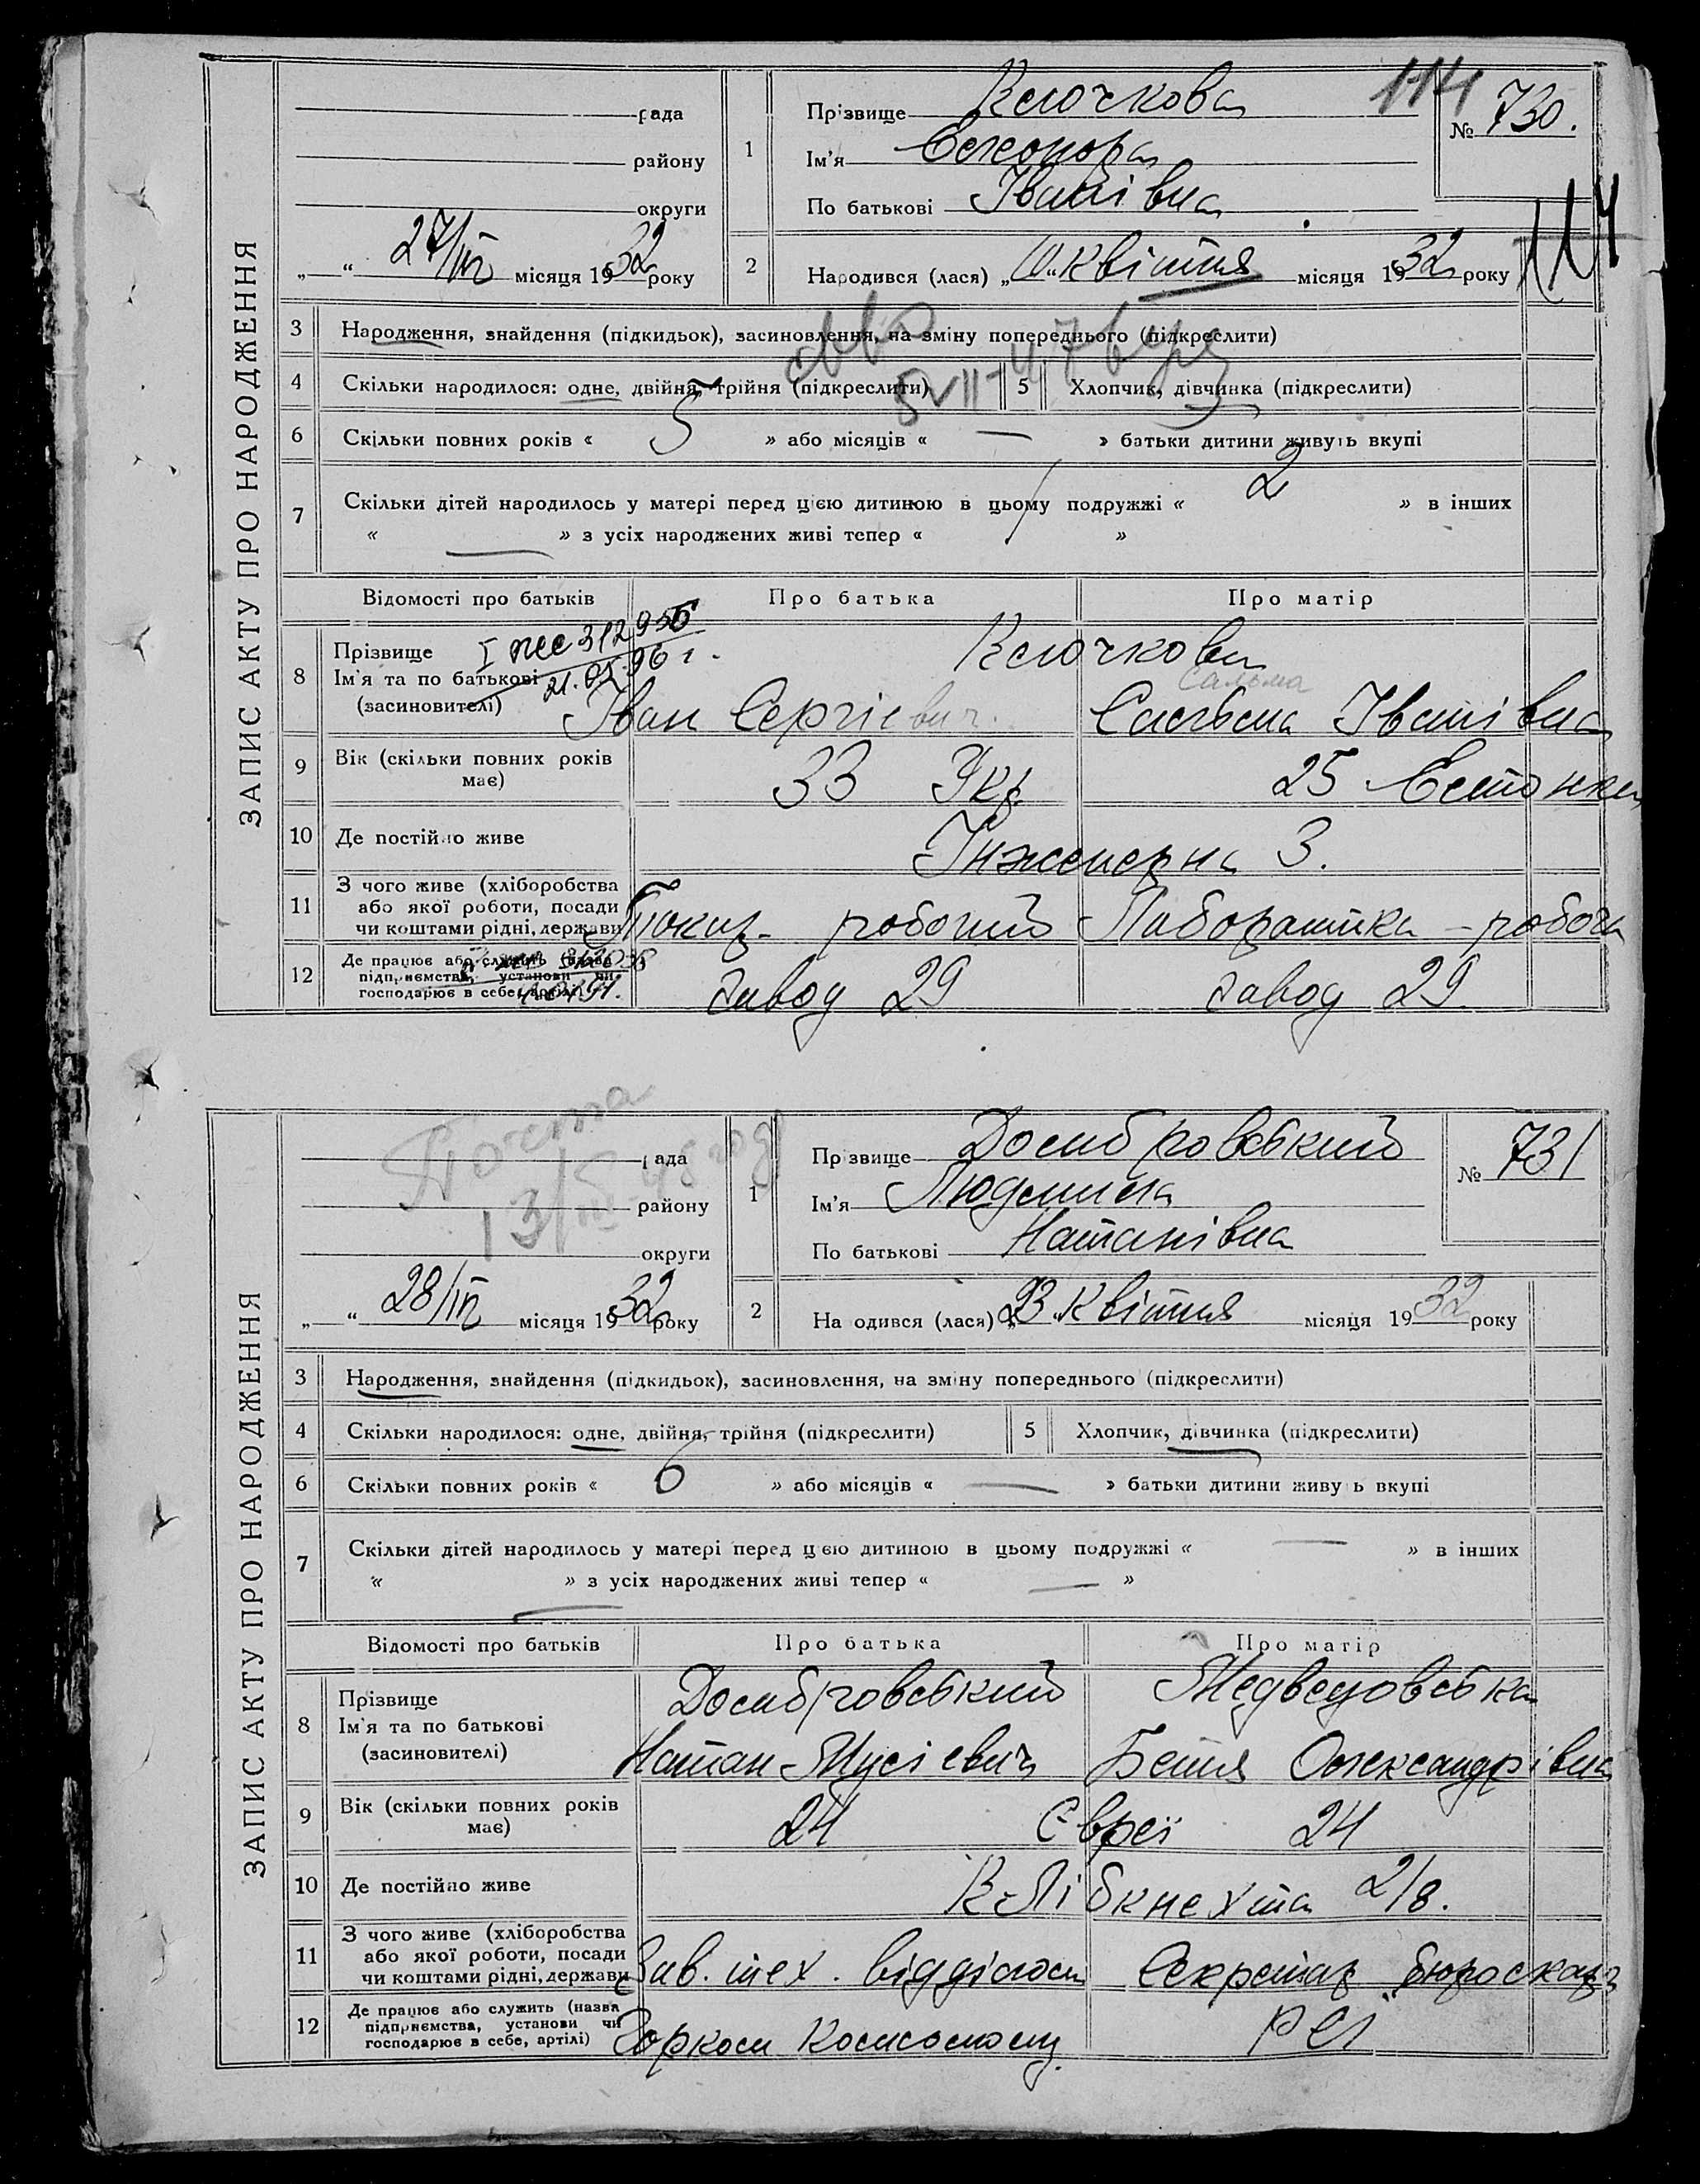 ЗАПИС АКТУ ПРО НАРОДЖЕННЯ
рада
району
округи
„ “ 27/IV місяця 1932 року
1
Прізвище Клочкова
Ім'я Елеонора
По батькові Іванівна
114
№ 730.
114
2
Народився (лася) „10“ квітня місяця 1932 року
3 Народження, знайдення (підкидьок), засиновлення, на зміну попереднього (підкреслити)
4 Скільки народилося: одне, двійня, трійня (підкреслити) 5 Хлопчик, дівчинка (підкреслити)
6 Скільки повних років « 5 » або місяців « — » батьки дитини живуть вкупі
7 Скільки дітей народилось у матері перед цією дитиною в цьому подружжі « 2 » в інших
« — » з усіх народжених живі тепер « / »
Відомості про батьків Про батька Про матір
8 Прізвище
Ім'я та по батькові
(засновителі)
Клочкови
Сальма
Іван Сергієвич. Сельма Іванівна
9 Вік (скільки повних років має) 33 Укр. 25 Естонка
10 Де постійно живе Інженерна 3.
11 З чого живе (хліборобства
або якої роботи, посади
чи коштами рідні, держави
Токар - робочий Лаборантка - робоча
12 Де працює або служить (назва
підприємства, установи чи
господарює в себе, артілі)
завод 29 завод 29
ЗАПИС АКТУ ПРО НАРОДЖЕННЯ
рада
району
округи
„ “ 28/IV місяця 1932 року
1
Прізвище Домбровський
Ім'я Людмила
По батькові Натанівна
№ 731
2
Народився (лася) „23“ квітня місяця 1932 року
3 Народження, знайдення (підкидьок), засиновлення, на зміну попереднього (підкреслити)
4 Скільки народилося: одне, двійня, трійня (підкреслити) 5 Хлопчик, дівчинка (підкреслити)
6 Скільки повних років « 6 » або місяців « — » батьки дитини живуть вкупі
7 Скільки дітей народилось у матері перед цією дитиною в цьому подружжі « — » в інших
« — » з усіх народжених живі тепер « — »
Відомості про батьків Про батька Про матір
8 Прізвище
Ім'я та по батькові
(засиновителі)
Домбровський Медведовська
Натан Мусієвич Бетя Олександрівна
9 Вік (скільки повних років має) 24 Євреї 24
10 Де постійно живе К. Лібкнехта 2/8.
11 З чого живе (хліборобства
або якої роботи, посади
чи коштами рідні, держави
Зав. тех. відділом Секретар
12 Де працює або служить (назва
підприємства, установи чи
господарює в себе, артілі)
Горком Комсомолу РСІ